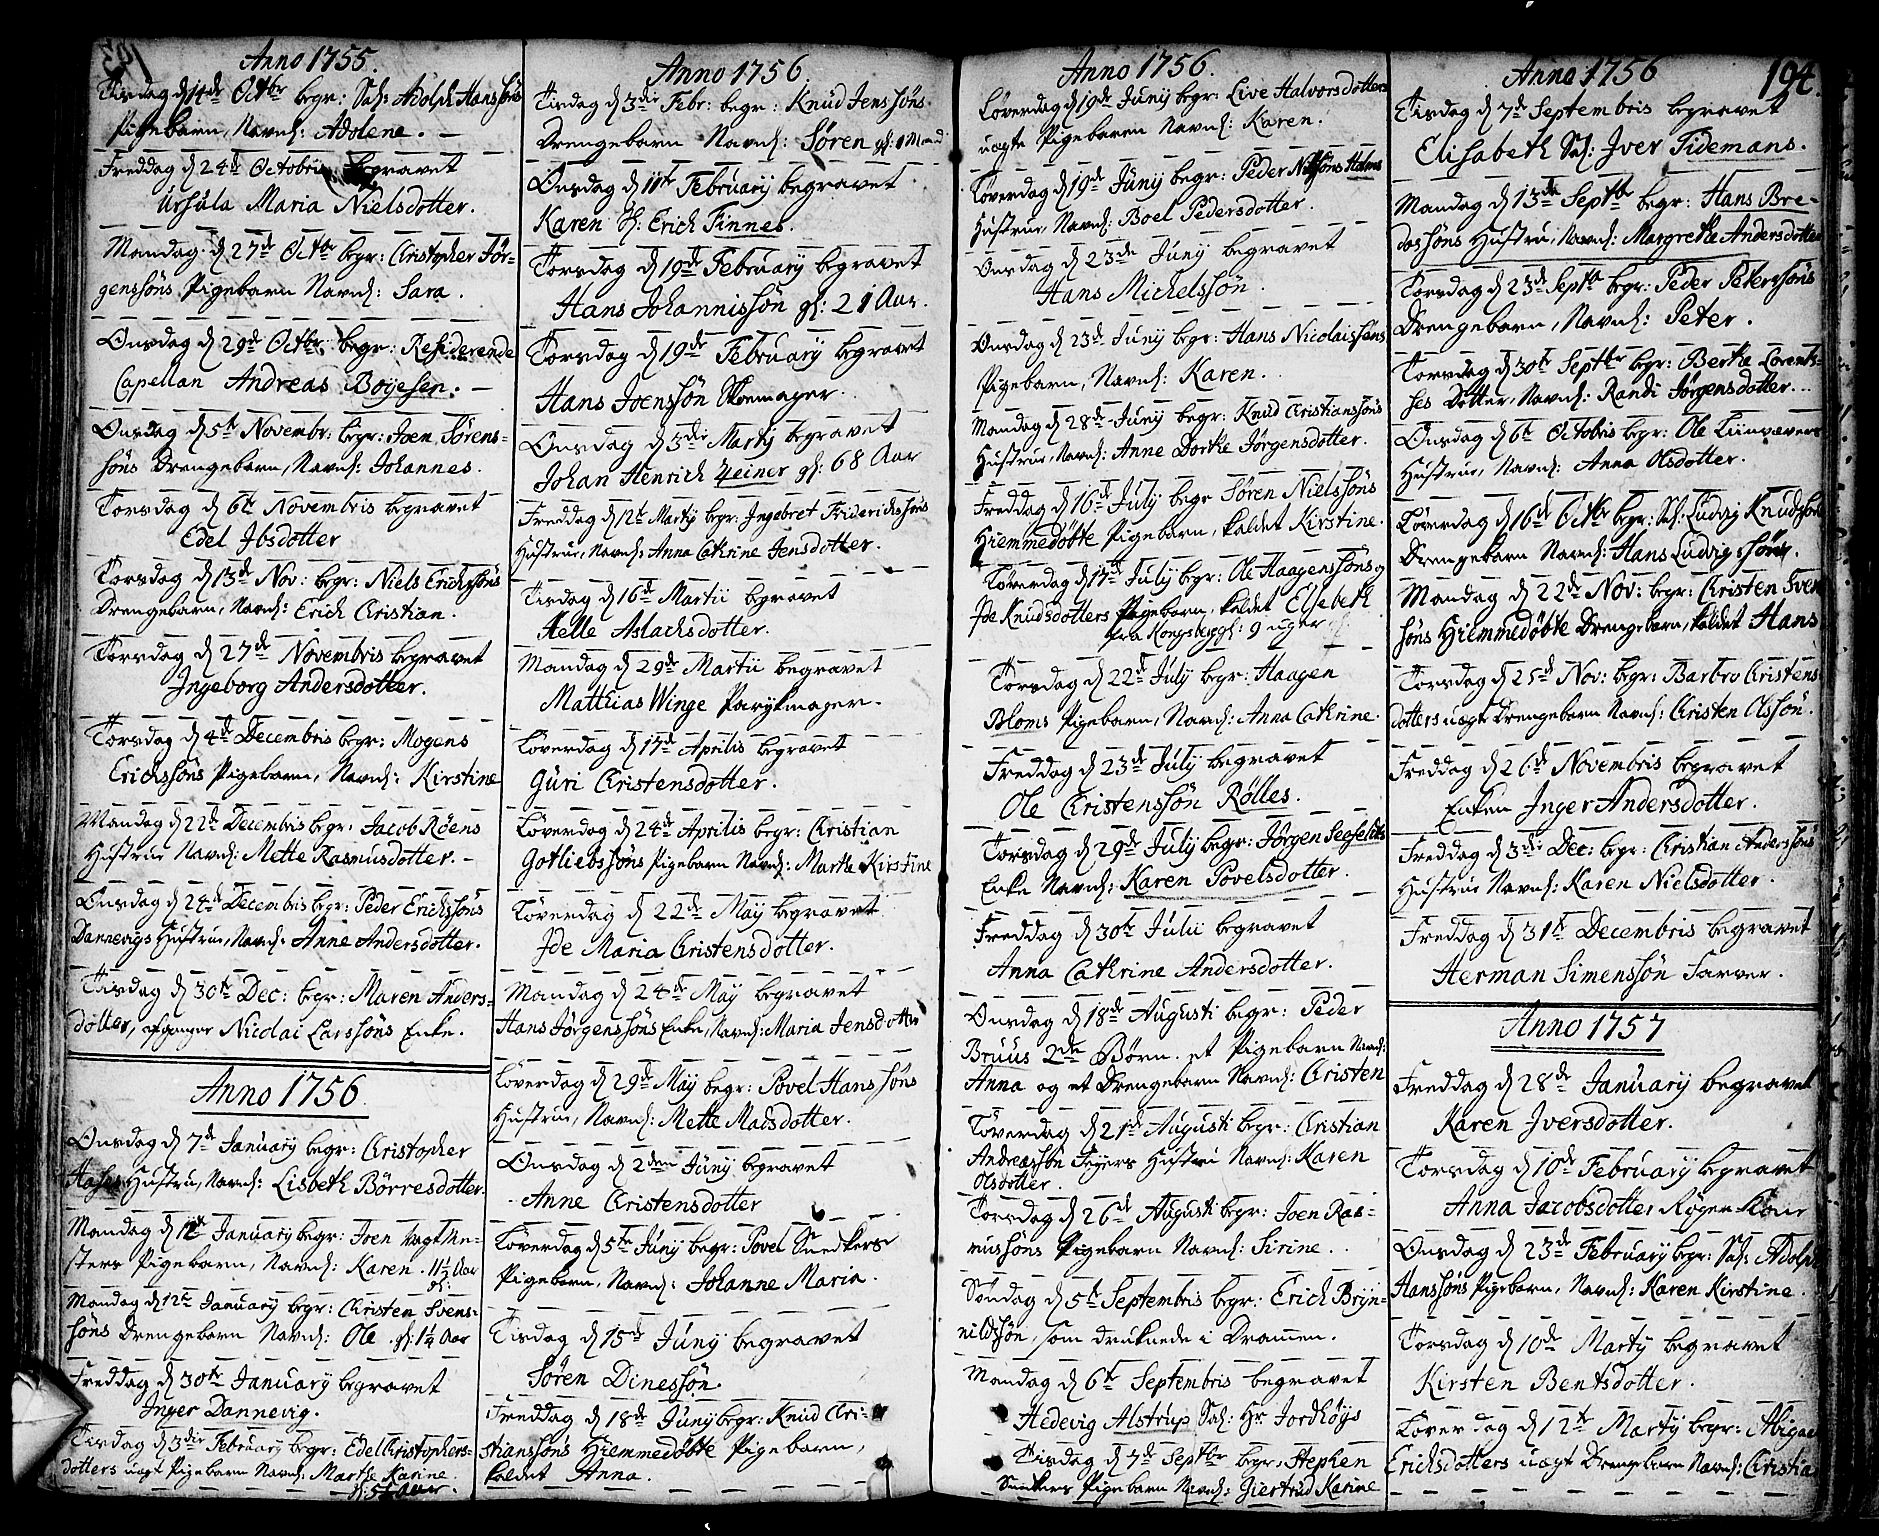 Anno 1755.
Tisdag d 14de Octbr begr: Sal: Adolph Hanssøns
Pigebarn, Navnl: Adolene. —
Freddag d 24d Octobris begravet
Ursula Maria Nielsdotter.
Mandag d 27de Octbr begr: Christopher Jør-
genssøns Pigebarn Navnl: Sara.
Onsdag d 29de Octbr: begr: Residerende
Capellan Andreas Boyesen. —
Onsdag d 5t Novembr: begr: Joen Sørens-
søns Drengebarn, Navnl: Johannes.
Torsdag d 6te Novembris begravet
Edel Ibsdotter
Torsdag d 13de Nov: begr: Niels Erichssøns
Drengebarn, Navnl: Erich Christian.
Torsdag d 27de Novembris begravet
Ingeborg Andersdotter.
Torsdag d 4de Decembris begr: Mogens
Erichssøns Pigebarn, Navnl: Kirstine
Mandag d 22de Decembris begr: Jacob Røens
Hustrue Navnl: Mette Rasmusdotter. —
Onsdag d 24de Decembris begr: Peder Erichssøns
Dannevigs Hustrue, Navnl: Anne Andersdotter.
Tisdag d 30te Dec: begr: Maren Anders-
dotter, afgangne Nicolai Larssøns Enke.
Anno 1756.
Onsdag d 7de January begr: Christopher
Hustrue, Navnl: Lisbeth Børresdotter.
Mandag d 12te January begr: Joen Vagtme-
sters Pigebarn, Navnl: Karen. 11½ Aar
gl:
Mandag d 12te January begr: Christen Svens-
søns Drengebarn Navnl: Ole. gl: 1¼ Aar
Freddag d 30te January begravet
Inger Dannevig.
Tisdag d 3die February begr: Edel Christophers-
dotters uægt Pigebarn Navnl: Marthe Karine.
gl: 5½ Aar.
Anno 1756.
Tisdag d 3die Febr: begr: Knud Jenssøns
Drengebarn Navnl: Søren gl: 1 Maand
Onsdag d 11te February begravet
Karen Erich Finnes.
Torsdag d 19de February begravet
Hans Johannissøn gl: 21 Aar
Torsdag d 19de February begravet
Hans Joenssøn Skoemager.
Onsdag d 3die Marty begravet
Johan Henrich Zeiner gl: 68 Aar
Freddag d 12te Marty begr: Ingebret Friderichssøns
Hustrue, Navnl: Anna Cathrine Jensdotter.
Tisdag d 16de Martii begravet
Helle Aslachsdotter.
Mandag d 29de Martii begravet
Matthias Winge Parykmager.
Løverdag d 17de Aprilis begravet
Guri Christensdotter.
Løverdag d 24de Aprilis begr: Christian
Gotliebssøns Pigebarn Navnl: Marthe Kirstine
Løverdag d 22de May begravet
Ide Maria Christensdotter.
Mandag d 24de May begravet
Hans Jørgenssøns Enke, Navnl: Maria Jensdotter
Løverdag d 29de May begr: Povel Hanssøns
Hustrue, Navnl: Mette Madsdotter.
Onsdag d 2den Juny begravet
Anne Christensdotter
Løverdag d 5te Juny begr: Povel Snedkers
Pigebarn, Navnl: Johanne Maria.
Tisdag d 15de Juny begravet
Søren Dinessøn.
Freddag d 18de Juny begr: Knud Chri-
stianssøns Hiemmedøbte Pigebarn,
kaldet Anna.
Anno 1756.
Løverdag d 19de Juny begr: Live Halvorsdotters
uægte Pigebarn Navnl: Karen.
Løverdag d 19de Juny begr: Peder Nilssøns Holms
Hustrue, Navnl: Boel Pedersdotter.
Onsdag d 23de Juny begravet
Hans Michelssøn.
Onsdag d 23de Juny begr: Hans Nicolaissøns
Pigebarn, Navnl: Karen.
Mandag d 28de Juny begr: Knud Christianssøns
Hustrue, Navnl: Anne Dorthe Jørgensdotter.
Freddag d 16de July begr Søren Nielssøns
Hiemmedøbte Pigebarn, kaldet Kirstine.
Løverdag d 17de July begr: Ole Haagenssøns og
Ide Knudsdotters Pigebarn, kaldet Elsebeth
fra Kongsberg gl: 9 uger
Torsdag d 22de July begr: Haagen
Bloms Pigebarn, Navnl: Anna Cathrine.
Freddag d 23de July begravet
Ole Christenssøn Rølles.
Torsdag d 29de July begr: Jørgen
Enke Navnl: Karen Povelsdotter.
Freddag d 30te Julii begravet
Anna Cathrine Andersdotter.
Onsdag d 18de Augusti begr: Peder
Bruus 2de Børn. et Pigebarn Navnl:
Anna og et Drengebarn Navnl: Christen
Løverdag d 21de Augusti begr: Christian
Andreæssøn Feyers Hustru Navnl: Karen
Olsdotter.
Torsdag d 26de Augusti begr: Joen Ras-
mussøns Pigebarn Navnl: Sirine.
Søndag d 5te Septembris begr: Erich Bryn-
nildssøn, som druknede i Drammen.
Mandag d 6te Septembris begravet
Hedevig Alstrup Sal: Hr Jordhøys
Tisdag d 7de Septbr begr: Stephen
Snedkers Pigebarn Navnl: Giertrud Karine
Anno 1756
194.
Tisdag d 7de Septembris begravet
Elisabeth Sal: Iver Tidemans.
Mandag d 13de Septbr begr: Hans Bre-
dessøns Hustrue, Navnl: Margrethe Andersdotter
Torsdag d 23de Septbr begr: Peder Peterssøns
Drengebarn, Navnl: Peter.
Torsdag d 30te Septbr begr: Berthe Lorents-
ses Dotter, Navnl: Randi Jørgensdotter.
Onsdag d 6te Octobris begr: Ole Liinvævers
Hustrue, Navnl: Anna Olsdotter.
Løverdag d 16de Octbr begr: Sal: Ludvig Knudssøns
Drengebarn Navnl: Hans Ludvigssøn.
Mandag d 22de Nov: begr: Christen Svens
søns Hiemmedøbte Drengebarn, kaldet Hans
Torsdag d 25de Nov: begr: Barbro Christens
dotters uægt Drengebarn Navnl: Christen Olssøn.
Freddag d 26de Novembris begravet
Enken Inger Andersdotter.
Freddag d 3die Dec: begr: Christian Anderssøns
Hustrue Navnl: Karen Nielsdotter.
Freddag d 31te Decembris begravet
Herman Simenssøn Farver.
Anno 1757
Freddag d 28de January begravet
Karen Iversdotter.
Torsdag d 10de February begravet
Anna Jacobsdotter Røgen Kone
Onsdag d 23de February begr: Sal: Adolph
Hanssøns Pigebarn, Navnl: Karen Kirstine.
Torsdag d 10de Marty begravet
Kirsten Bentsdotter.
Løverdag d 12te Marty begr: Abigael
Erichsdotters uægt Drengebarn Navnl: Christian